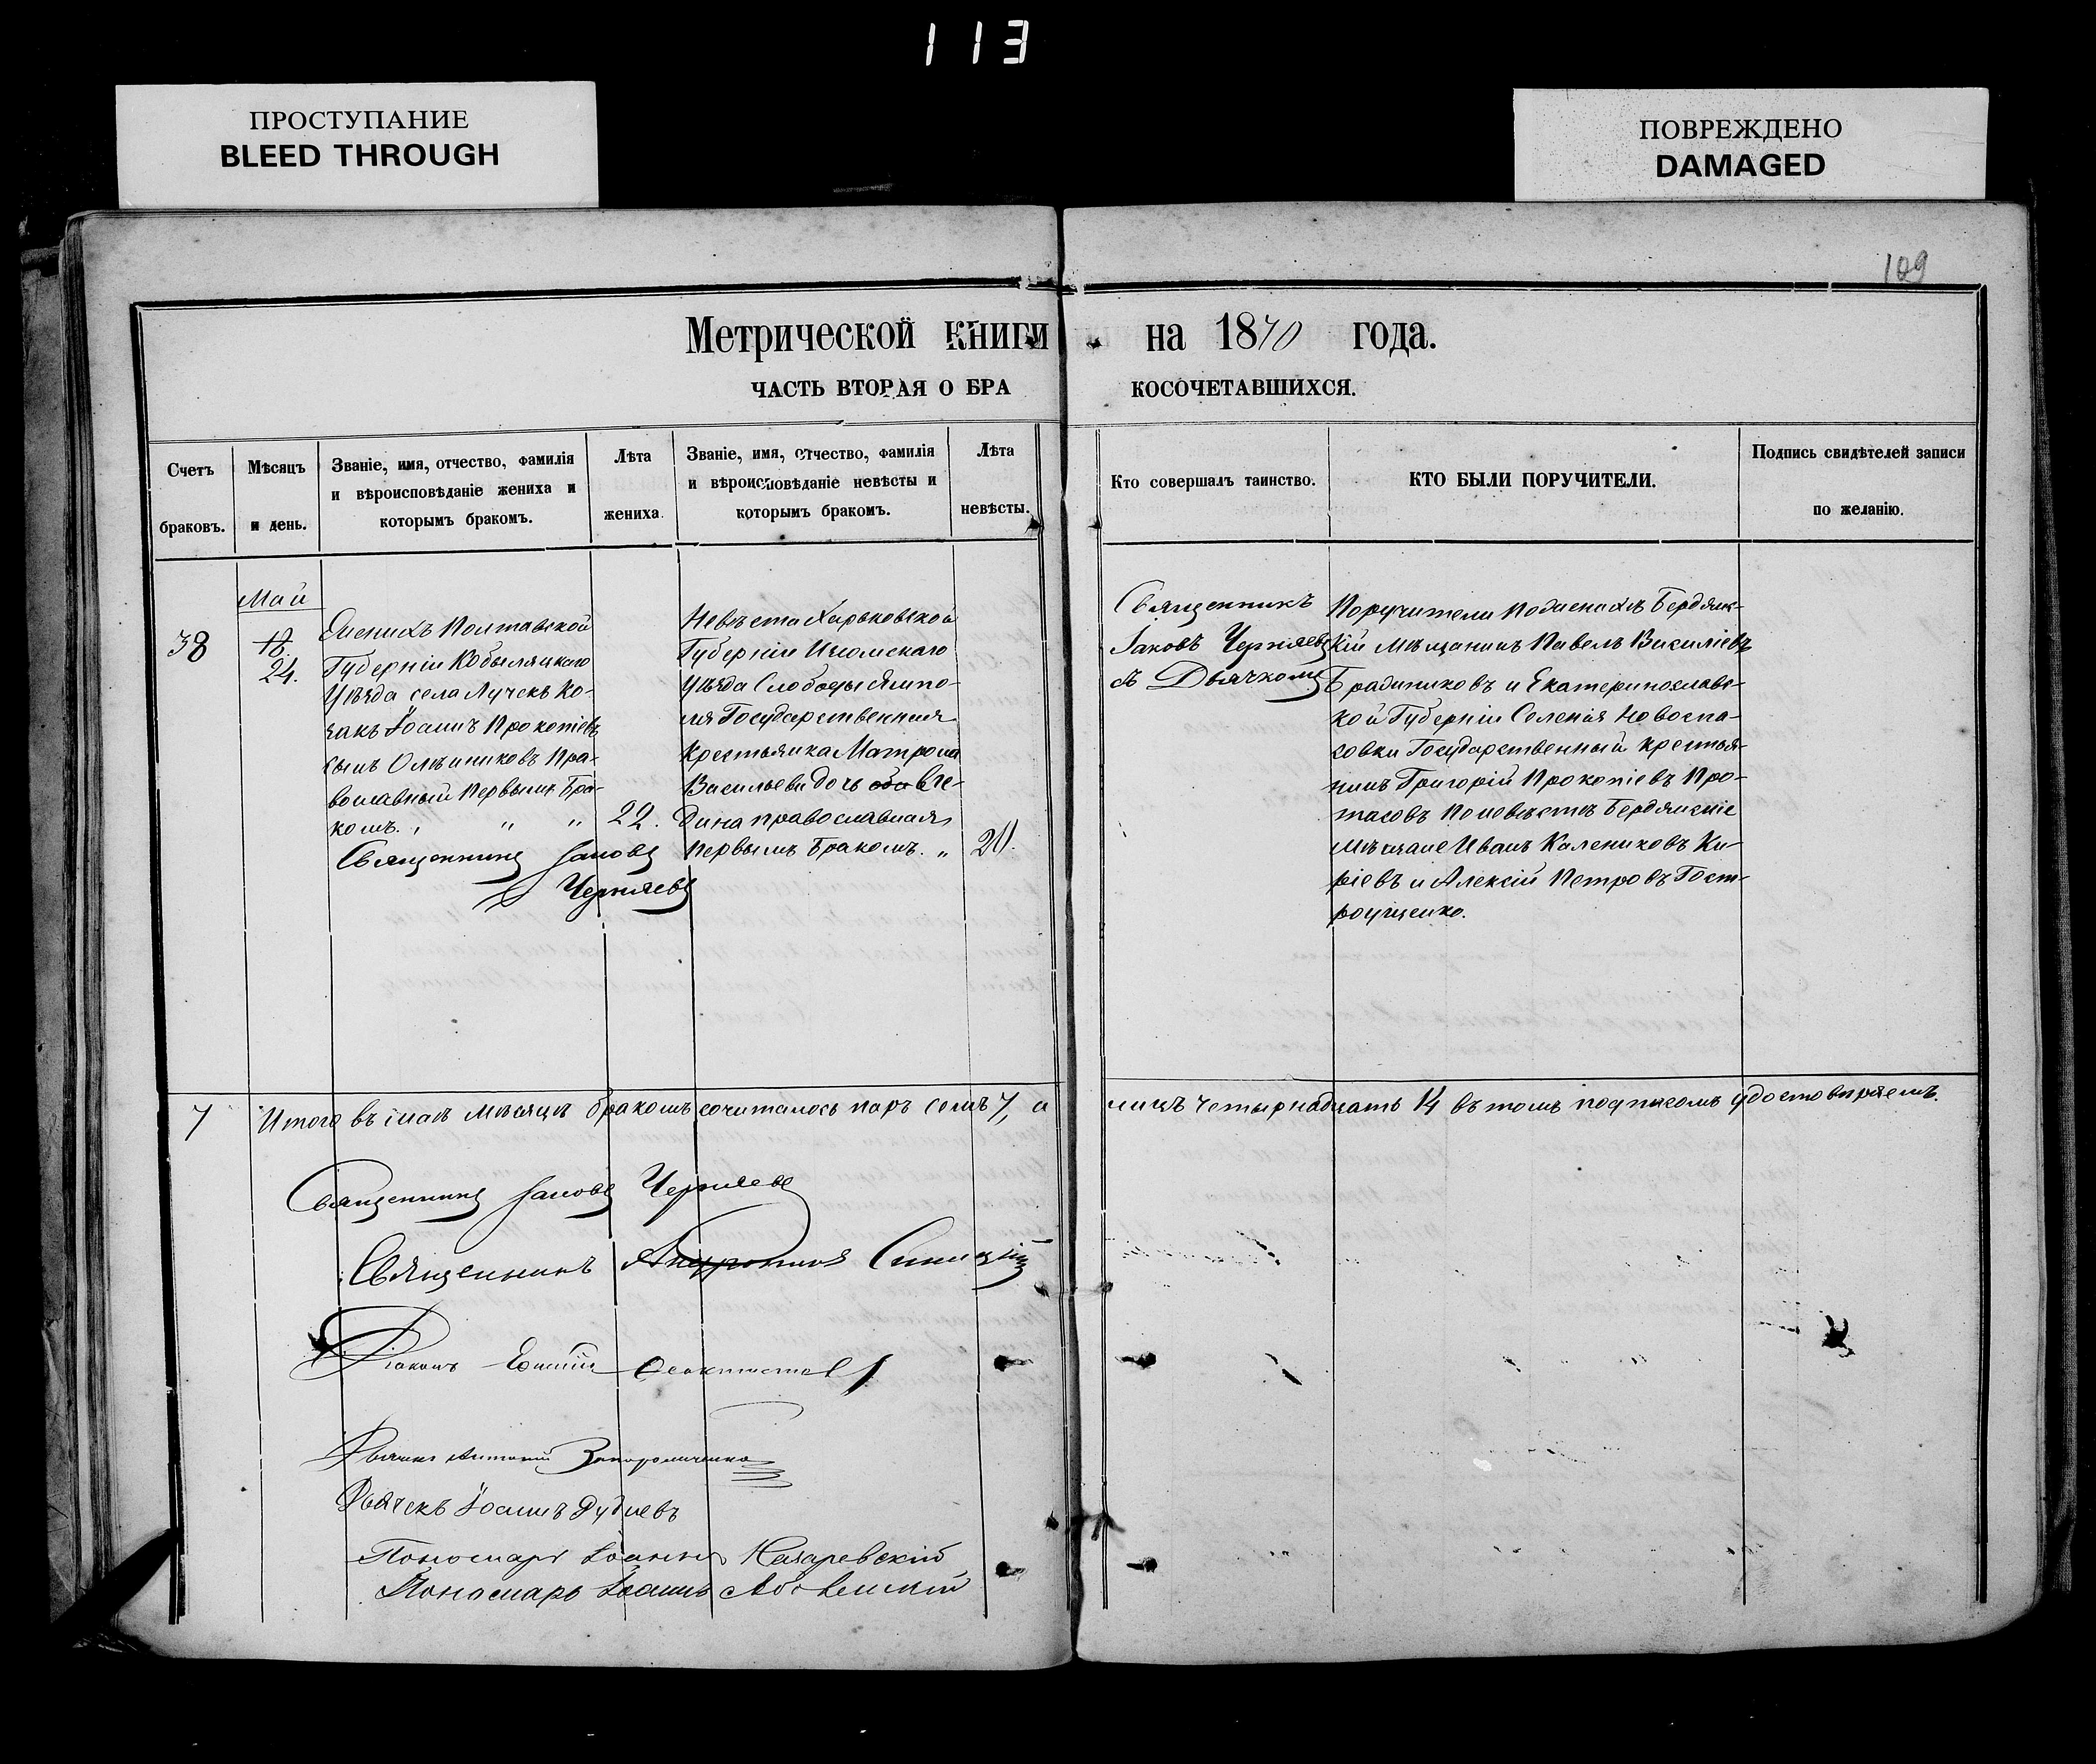 113
ПРОСТУПАНИЕ
BLEED THROUGH
ПОВРЕЖДЕНО
DAMAGED
109
Метрической книги на 1870 года.
ЧАСТЬ ВТОРАЯ О БРАКОСОЧЕТАВШИХСЯ.
Счетъ
браковъ.
Мѣсяцъ
и день.
Званіе, имя, отчество, фамилія
и вѣроисповѣданіе жениха и
которымъ бракомъ.
Лѣта
жениха.
Званіе, имя, отчество, фамилія
и вѣроисповѣданіе невѣсты и
которымъ бракомъ.
Лѣта
невѣсты.
Кто совершалъ таинство.
КТО БЫЛИ ПОРУЧИТЕЛИ.
Подпись свидѣтелей записи
по желанію.
38
Май
18.
24.
Женихъ Полтавской
Губерніи Кобыляцкаго
Уѣзда села Лучекъ Ко-
закъ Іоаннъ Прокопіевъ
сынъ Олѣйниковъ Пра-
вославный Первымъ Бра-
комъ. „ „ „
22.
Священникъ Іаковъ
Черняевъ
Невѣста Харьковской
Губерніи Изюмскаго
Уѣзда Слободы Ямпо-
ля Государственная
Крестьянка Матрона
Васильева дочь
дина православная
Первымъ Бракомъ. „
20.
Священникъ
Іаковъ Черняевъ
съ Дьячкомъ
Поручители По женихѣ Бердянс-
кій мѣщанинъ Павелъ Василіевъ
и Екатеринославс-
кой Губерніи Селенія Новоспа-
совки Государственный крестья-
нинъ Григорій Прокопіевъ Про-
тасовъ По невѣстѣ Бердянскіе
Мѣщане Иванъ Калениковъ Ки-
ріевъ и Алексій Петровъ Гост-
рощенко.
7
Итого въ маѣ мѣсяцѣ бракомъ сочиталось паръ семь 7, а
лицъ четырнадцать 14 въ томъ подписомъ удостовѣряемъ.
Священникъ Іаковъ Черняевъ
Священникъ Синицкій
Діаконъ
Дьячекъ Антоній
Дьячекъ Іоаннъ Рудневъ
Пономарь Іоаннъ Назаревскій
Пономарь Іоаннъ